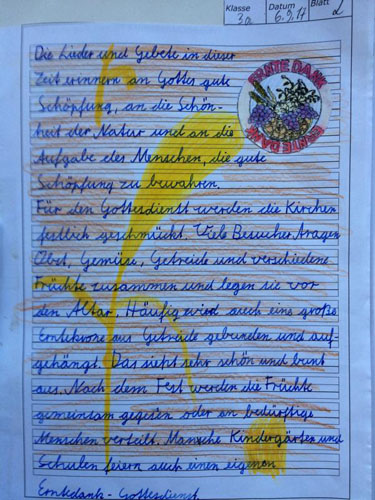 Klasse
3a
Datum
6.9.17
Blatt
2
ERNTE DANK
ERNTE DANK
Die Lieder und Gebete in dieser
Zeit erinnern an Gottes gute
Schöpfung, an die Schön-
heit der Natur und an die
Aufgabe des Menschen, die gute
Schöpfung zu bewahren.
Für den Gottesdienst werden die Kirchen
festlich geschmückt. Viele Besucher tragen
Obst, Gemüse, Getreide und verschiedene
Früchte zusammen und legen sie vor
den Altar. Häufig wird auch eine große
Erntekrone aus Getreide gebunden und auf-
gehängt. Das sieht sehr schön und bunt
aus. Nach dem Fest werden die Früchte
gemeinsam gegessen oder an bedürftige
Menschen verteilt. Manche Kindergärten und
Schulen feiern auch einen eigenen
Erntedank-Gottesdienst